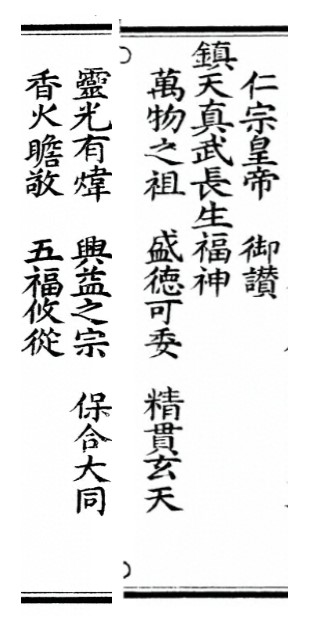 仁宗皇帝　御讃
鎮天真武長生福神
萬物之祖　盛德可委　精貫玄天
靈光有煒　興益之宗　保合大同
香火瞻敬　五福攸從